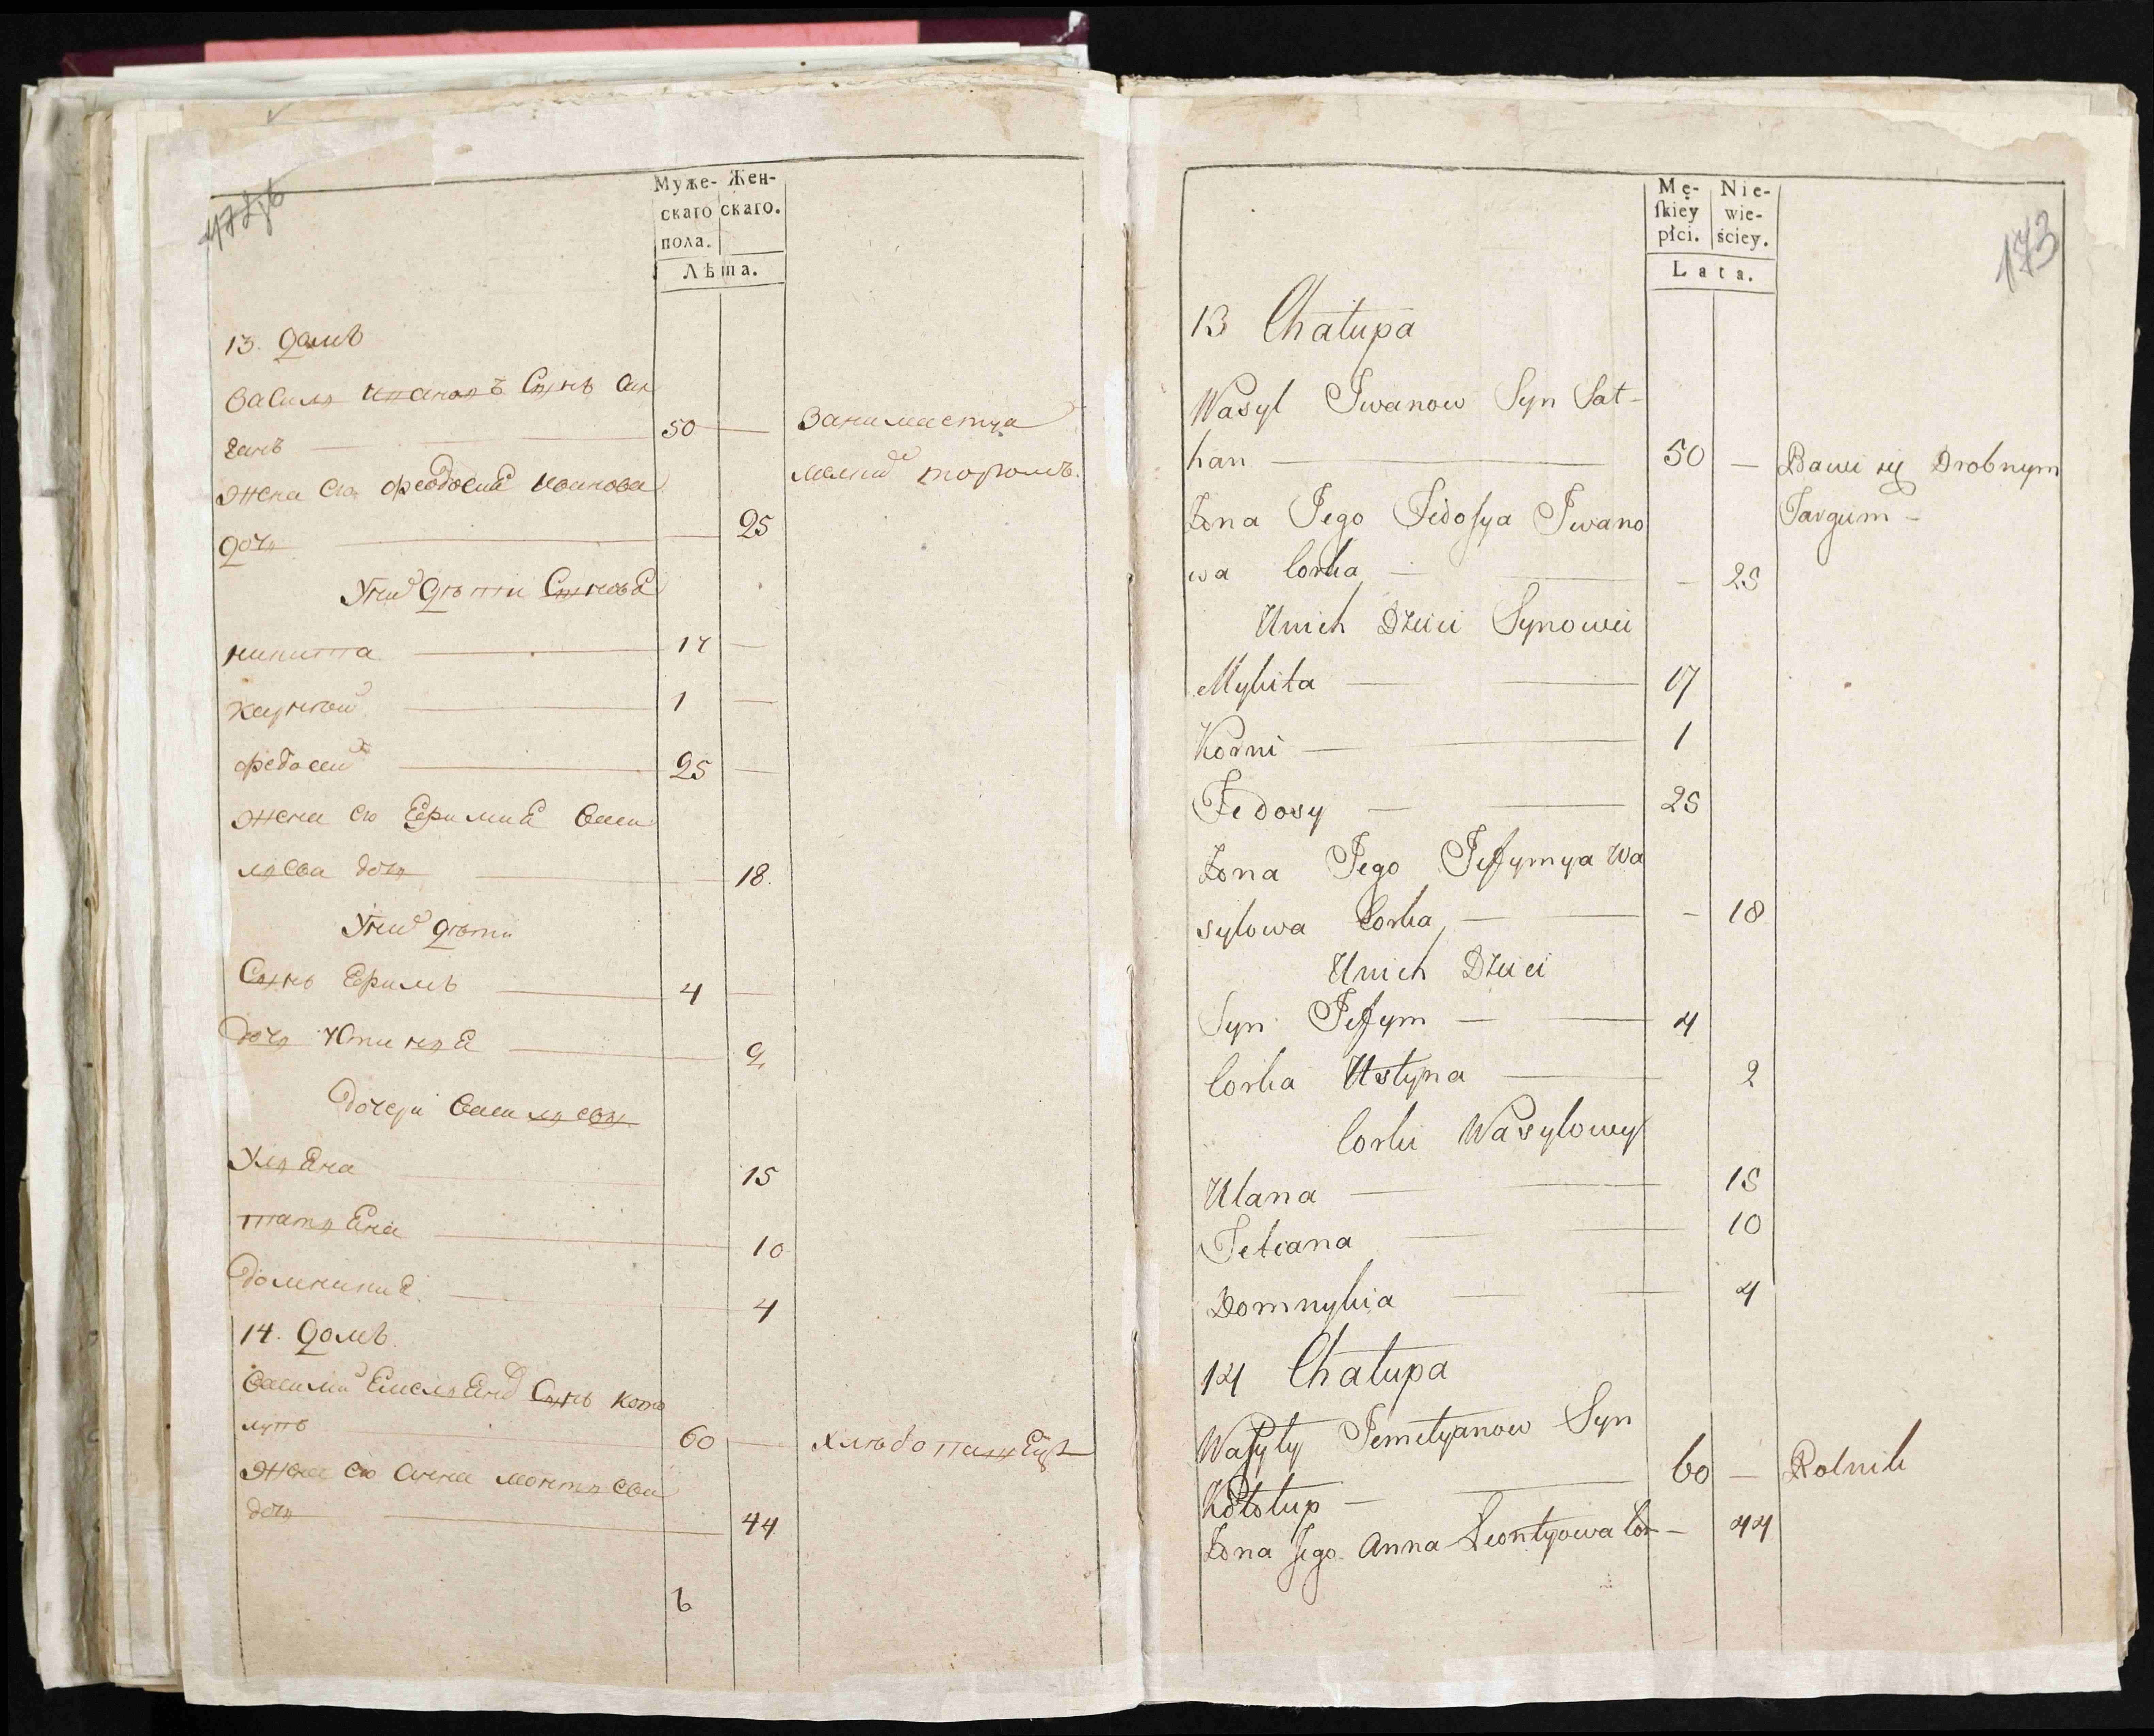 Муже- Жен-
скаго скаго.
пола.
Лѣта.
13. Домъ
Василь Ивановъ Сынъ Сат
ганъ 50 — Занимается
Жена Его Феодосия Иванова мелкий торгомъ.
дочь — 25
У них Дѣти Сыновья
Никита 17 —
Карней 1 —
Федосей 25 —
Жена Его Ефимия Васи
льева дочь — 18.
У них Дѣти
Сынъ Ефимъ 4 —
Дочь Юстинья 2
Дочери Васильевы
Ульяна 15
Татьяна 10
Домникия 4
14. Домъ.
Василий Емельянов Сынъ Коло
лупъ 60 — Хлѣбопашецъ
Жена Его Анна Леонтьева
дочь 44
6
Mę- Nie-
skiey wie-
płci. ściey.
Lata.
173
13 Chałupa
Wasyl Iwanow Syn Sat-
han 50 — Bawi się Drobnym
Żona Jego Fedosya Iwano Targum —
wa Corka — 25
Unich Dzieci Synowie
Mykita 17
Korni 1
Fedosy 25
Żona Jego Jefymya Wa
sylowa Corka — 18
Unich Dzieci
Syn Jefym 4
Corka Ustyna 2
Corki Wasylowy
Ulana 15
Tetiana 10
Domnykia 4
14 Chałupa
Wasyly Jemelyanow Syn
Kołolup 60 — Rolnik
Żona Jego Anna Leontyowa Cor — 44